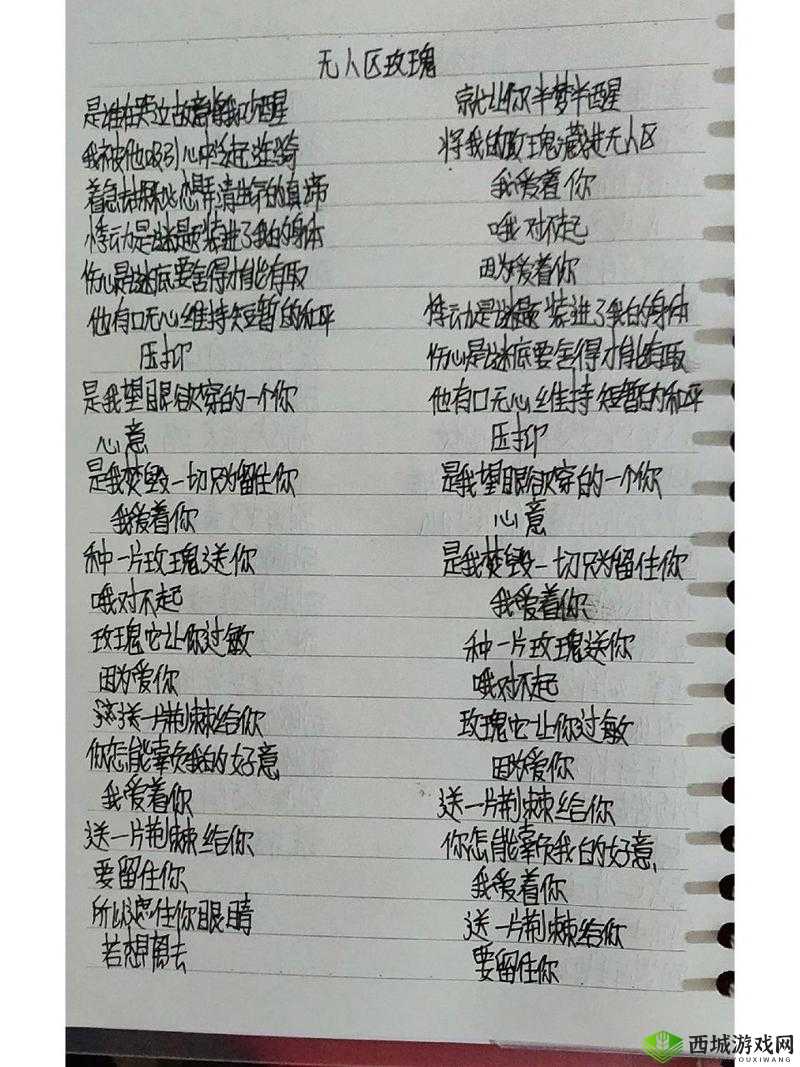 无人区玫瑰
是谁在旁边故意将我吵醒
我被他吸引心中泛起涟漪
着急去探秘想弄清生命的真谛
悸动是谜题装进了我的身体
伤心是谜底要舍得才能有取
他有口无心维持短暂的和平
压抑
是我望眼欲穿的一个你
心意
是我焚毁一切只为留住你
我爱着你
种一片玫瑰送你
哦对不起
玫瑰它让你过敏
因为爱你
送一片荆棘给你
你怎能辜负我的好意
我爱着你
送一片荆棘给你
要留住你
所以遮住你眼睛
若想离去
就让你半梦半醒
将我的玫瑰藏进无人区
我爱着你
哦对不起
因为爱着你
悸动是谜题装进了我的身体
伤心是谜底要舍得才能有取
他有口无心维持短暂的和平
压抑
是我望眼欲穿的一个你
心意
是我焚毁一切只为留住你
我爱着你
种一片玫瑰送你
哦对不起
玫瑰它让你过敏
因为爱你
送一片荆棘给你
你怎能辜负我的好意
我爱着你
送一片荆棘给你
要留住你
西城游戏网
YOUXIWANG